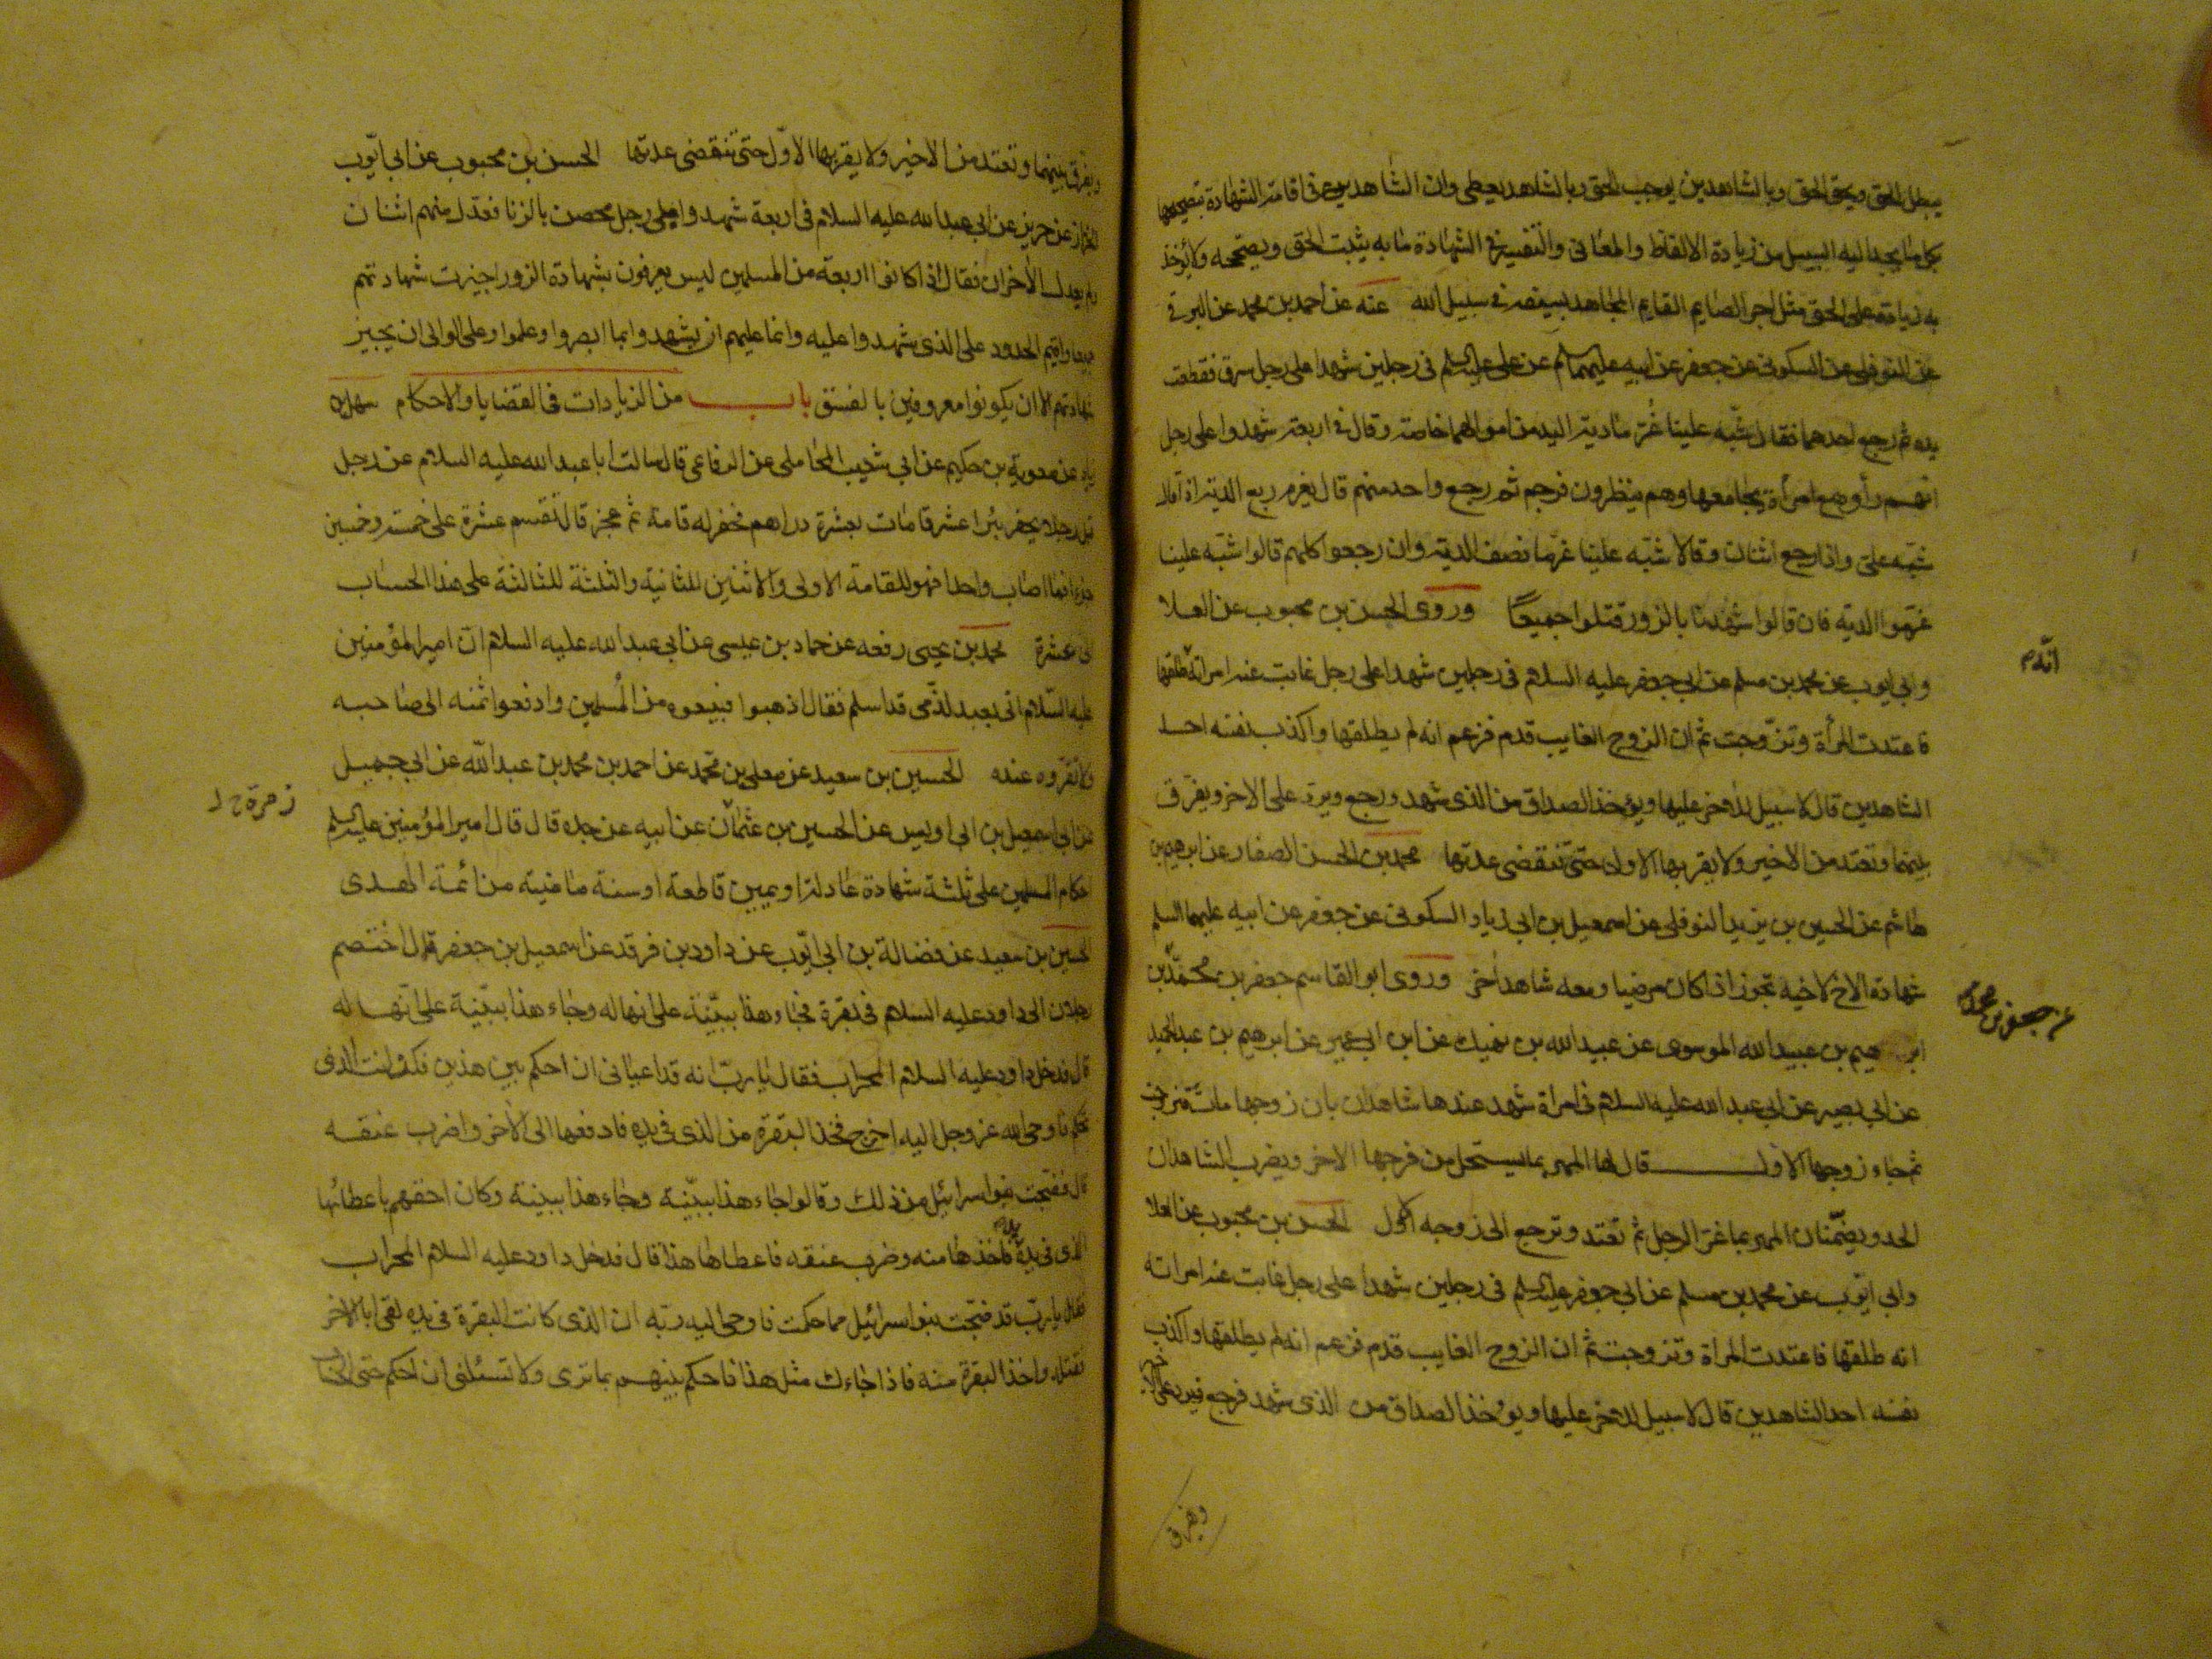 يبطل الحق ويحق الحق وبالشاهدين يوجب الحق وبالشاهد يعطى وان الشاهدين في اقامة الشهادة بتصحيحها
بكل ما يجد اليه السبيل من زيادة الالفاظ والمعانى والتفسير في الشهادة ما به يثبت الحق ويصححه ولا يؤخذ
به زيادة على الحق مثل اجر الصايم القايم المجاهد بسيفه في سبيل الله عنه عن احمد بن محمد عن البرقى
عن النوفلى عن السكونى عن جعفر عن ابيه عليهما السلم عن على عليه السلم فى رجلين شهدا على رجل سرق فقطعت
يده ثم رجع احدهما فقال شبّه علينا غُرّما دية اليد من اموالهما خاصة وقال في اربعة شهدوا على رجل
انهم رأوه مع امرأة يجامعها وهم ينظرون فرجم ثم رجع واحد منهم قال يغرم ربع الدية اذا قال
شبّه علىّ واذا رجع اثنان وقالا شبّه علينا غرّما نصف الدية وان رجعوا كلهم قالوا شبّه علينا
غرّموا الدية فان قالوا شهدنا بالزور قتلوا جميعًا وروى الحسن بن محبوب عن العلا
وابي ايوب عن محمد بن مسلم عن ابي جعفر عليه السلام فى رجلين شهدا على رجل غايب عند امراته طلقها
انّه م
فاعتدت المرأة وتزّوجت ثم ان الزوج الغايب قدم فزعم انه لم يطلقها واكذب نفسه احد
الشاهدين قال لا سبيل للاخر عليها ويؤخذ الصداق من الذى شهد ورجع ويردّ على الاخر ويفرّق
بينهما وتعتد من الاخير ولا يقربها الاول حتى تنقضى عدتها محمد بن الحسن الصفار عن ابرهيم بن
هاشم عن الحسين بن يزيد النوفلى عن اسمعيل بن ابى زياد السكونى عن جعفر عن ابيه عليهما السلم
شهادة الاخ لاخيه تجوز اذا كان مرضيا ومعه شاهد اخر وروى ابو القاسم جعفر بن محمّد بن
عن جعفر بن محمد
ابرهيم بن عبيد الله الموسوى عن عبيد الله بن نهيك عن ابن ابي عمير عن ابرهيم بن عبد الحميد
عن ابي بصير عن ابي عبد الله عليه السلام فى امراة شهد عندها شاهدان بان زوجها مات فتزوجت
ثم جاء زوجها الاول قال لها المهر بما استحل من فرجها الاخر ويضرب الشاهدان
الحد ويضمّنان المهر بما غرّا الرجل ثم تعتد وترجع الى زوجها الاول الحسن بن محبوب عن العلا
وابي ايّوب عن محمد بن مسلم عن ابي جعفر عليه السلم فى رجلين شهدا على رجل غايب عند امراته
انه طلقها فاعتدت المراة وتزوجت ثم ان الزوج الغايب قدم فزعم انه لم يطلقها واكذب
نفسه احد الشاهدين قال لا سبيل للاخر عليها ويوخذ الصداق من الذى شهد فرجع فيرد على الاخر
ويفرق
ويفرّق بينهما وتعتد من الاخير ولا يقربها الاوّل حتى تنقضى عدتها الحسن بن محبوب عن ابى ايّوب
الخزاز عن حريز عن ابي عبد الله عليه السلام فى اربعة شهدوا على رجل محصن بالزنا فعدّل منهم اثنان
ولم يعدل الأخران فقال اذا كانوا اربعة من المسلمين ليس يعرفون بشهادة الزور اجيزت شهادتهم
جميعا واقيم الحدود على الذى شهدوا عليه وانما عليهم ان يشهدوا بما ابصروا وعلموا وعلى الوالى ان يجيز
شهادتهم الا ان يكونوا معروفين بالفسق باب من الزيادات فى القضايا والاحكام سهل بن
زياد عن معوية بن حكيم عن ابي شعيب المحاملى عن الرفاعى قال سالت ابا عبد الله عليه السلام عن رجل
قبل رجلا يحفر بئرا عشر قامات بعشرة دراهم فحفر له قامة ثم عجز قال تقسم عشرة على خمسة وخمسين
جزءا فما اصاب واحدا فهو للقامة الاولى والاثنين للثانية والثلثة للثالثة على هذا الحساب
الى عشرة محمد بن يحيى رفعه عن حماد بن عيسى عن ابي عبد الله عليه السلام انّ امير المؤمنين
عليه السّلام اتى بعبد لذّمى قد اسلم فقال اذهبوا فبيعوه من المُسلمين وادفعوا ثمنه الى صاحبه
ولا تقرّوه عنده الحسين بن سعيد عن معلى بن محمّد عن احمد بن محمد بن عبد الله عن ابى جميل
عن اسمعيل بن ابى اويس عن الحسين بن عثمان عن ابيه عن جده قال قال امير المؤمنين عليه السلم
احكام المسلمين على ثلثة شهادة عادلة او يمين قاطعة او سنة ماضية من ائمة الهدى
الحسين بن سعيد عن فضالة بن ابى ايّوب عن داود بن فرقد عن اسمعيل بن جعفر قال اختصم
رجلان الى داود عليه السلام فى بقرة فجاء هذا ببيّنة على انها له وجاء هذا ببيّنة على انّها له
قال فدخل داود عليه السلام المحراب فقال يا ربّ انه قد اعيانى ان احكم بين هذين فكن انت الذى
تحكم فاوحى الله عز وجل اليه اخرج فخذ البقرة من الذى فى يده فادفعها الى الأخر واضرب عنقه
قال فضجت بنو اسرائيل من ذلك وقالوا جاء هذا ببيّنة وجاء هذا ببينة وكان احقهم باعطائها
الذى فى يده فاخذها منه وضرب عنقه فاعطاها هذا قال فدخل داود عليه السلام المحراب
فقال يا ربّ قد ضجت بنو اسرائيل مما حكمت فاوحى اليه ربّه ان الذى كانت البقرة فى يده لقى ابا الاخر
فقتله واخذ البقرة منه فاذا جاءك مثل هذا فاحكم بينهم بما ترى ولا تسئلنى ان احكم حتى الحساب